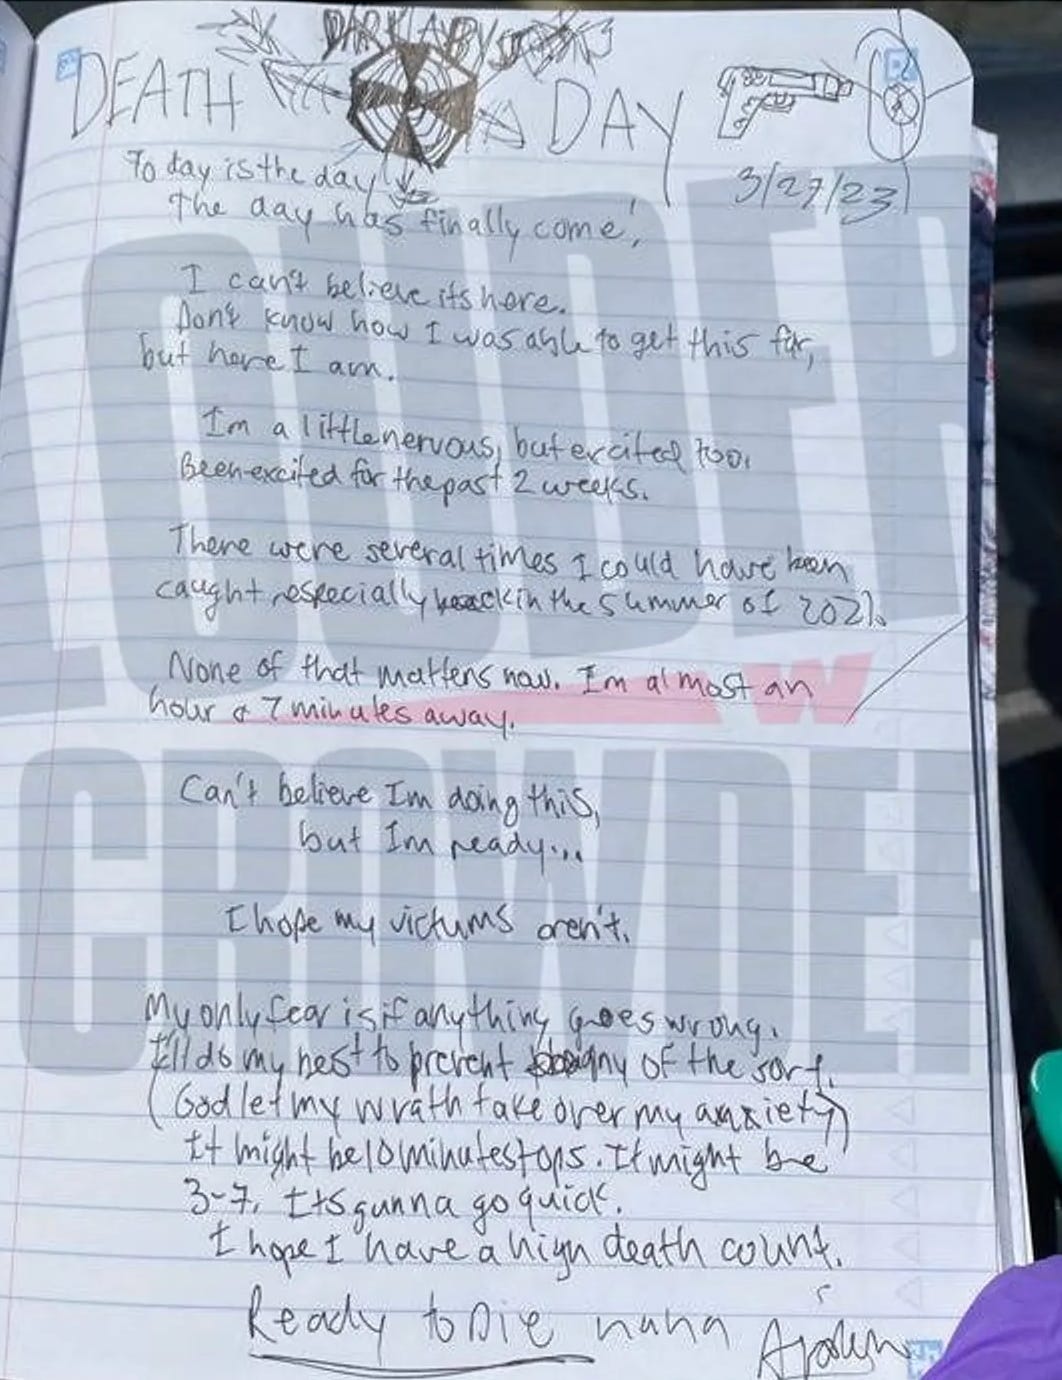 DARK ABYSS
DEATH DAY
3/27/23
Today is the day
The day has finally come!
I can't believe its here.
Don't know how I was able to get this far,
but here I am.
Im a little nervous, but excited too.
Been excited for the past 2 weeks.
There were several times I could have been
caught, especially back in the summer of 2021.
None of that matters now. Im almost an
hour & 7 minutes away.
Can't believe Im doing this,
but Im ready...
I hope my victums aren't.
My only fear is if anything goes wrong.
I'll do my best to prevent any of the sort.
(God let my wrath take over my anxiety)
It might be 10 minutes tops. It might be
3-7. Its gunna go quick.
I hope I have a high death count.
Ready to Die
LOUDER
W
CROWDER